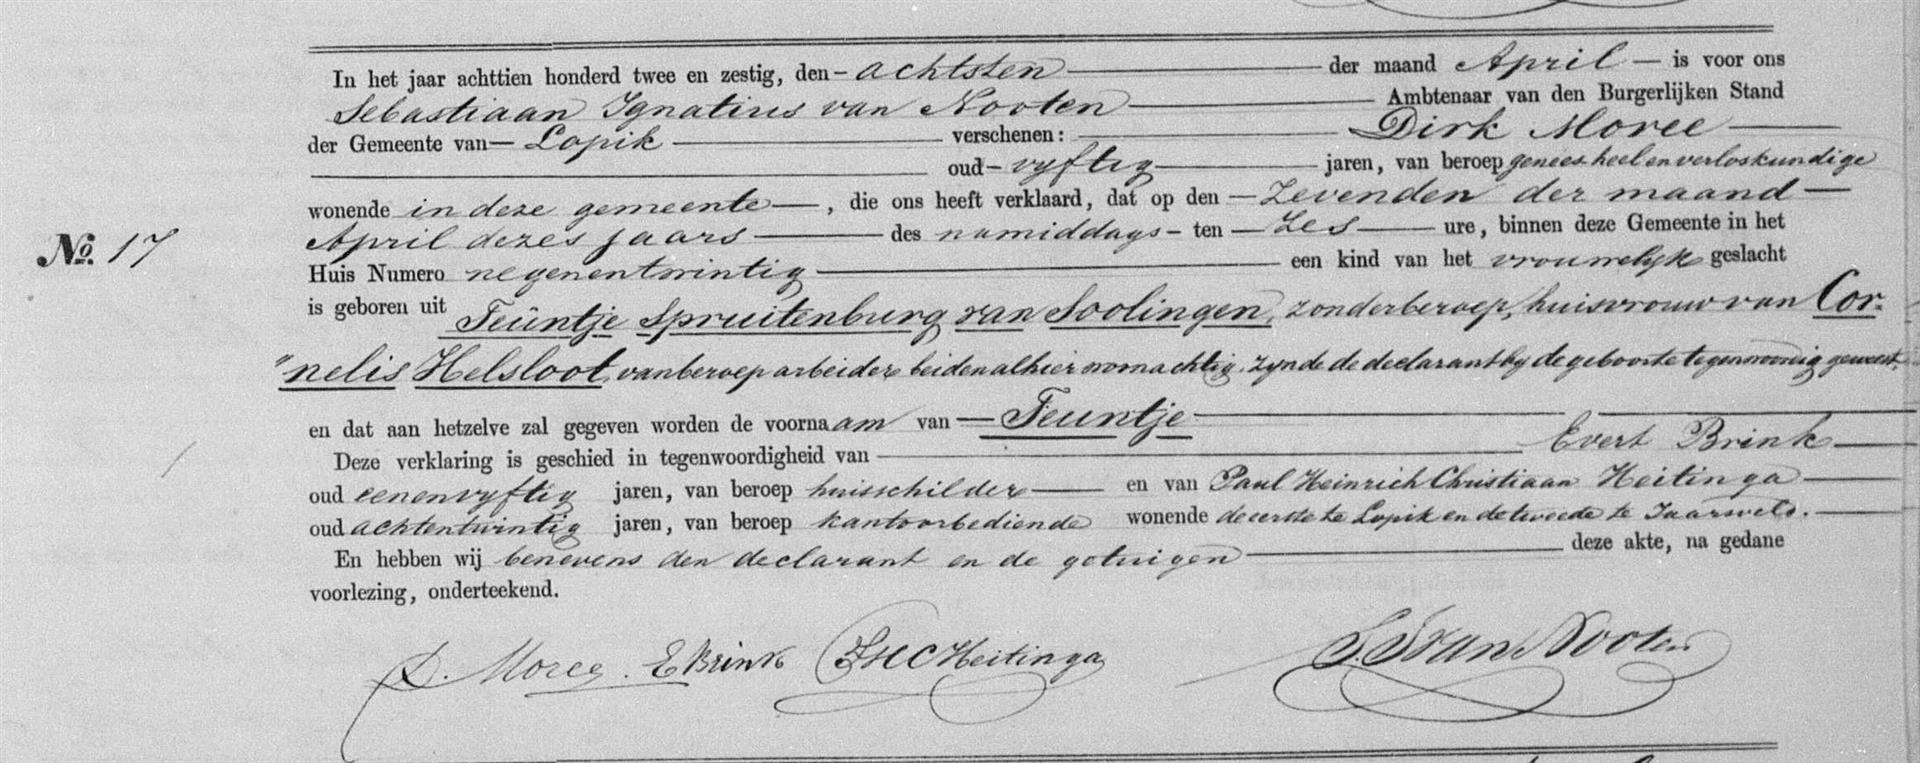 In het jaar achttien honderd twee en zestig, den achtsten der maand April is voor ons
Sebastiaan Ignatius van Nooten Ambtenaar van den Burgerlijken Stand
der Gemeente van Lopik verschenen: Dirk Moree
oud vyftig jaren, van beroep genees heel en verloskundige
wonende in deze gemeente, die ons heeft verklaard, dat op den zevenden der maand
April dezes jaars des namiddags ten zes ure, binnen deze Gemeente in het
No. 17
Huis Numero negenentwintig een kind van het vrouwelyk geslacht
is geboren uit Teuntje Spruitenburg van Soolingen, zonder beroep, huisvrouw van Cor-
"nelis Helsloot, van beroep arbeider beiden alhier woonachtig, zynde de declarant by de geboorte tegenwoordig geweest,
en dat aan hetzelve zal gegeven worden de voornaam van Teuntje
Deze verklaring is geschied in tegenwoordigheid van Evert Brink
oud eenenvyftig jaren, van beroep huisschilder en van Paul Heinrich Christiaan Heitinga
oud achtentwintig jaren, van beroep kantoorbediende wonende de eerste te Lopik en de tweede te Jaarsveld.
En hebben wij benevens den declarant en de getuigen deze akte, na gedane
voorlezing, onderteekend.
D. Moree. E Brink PHC Heitinga S. I. van Nooten